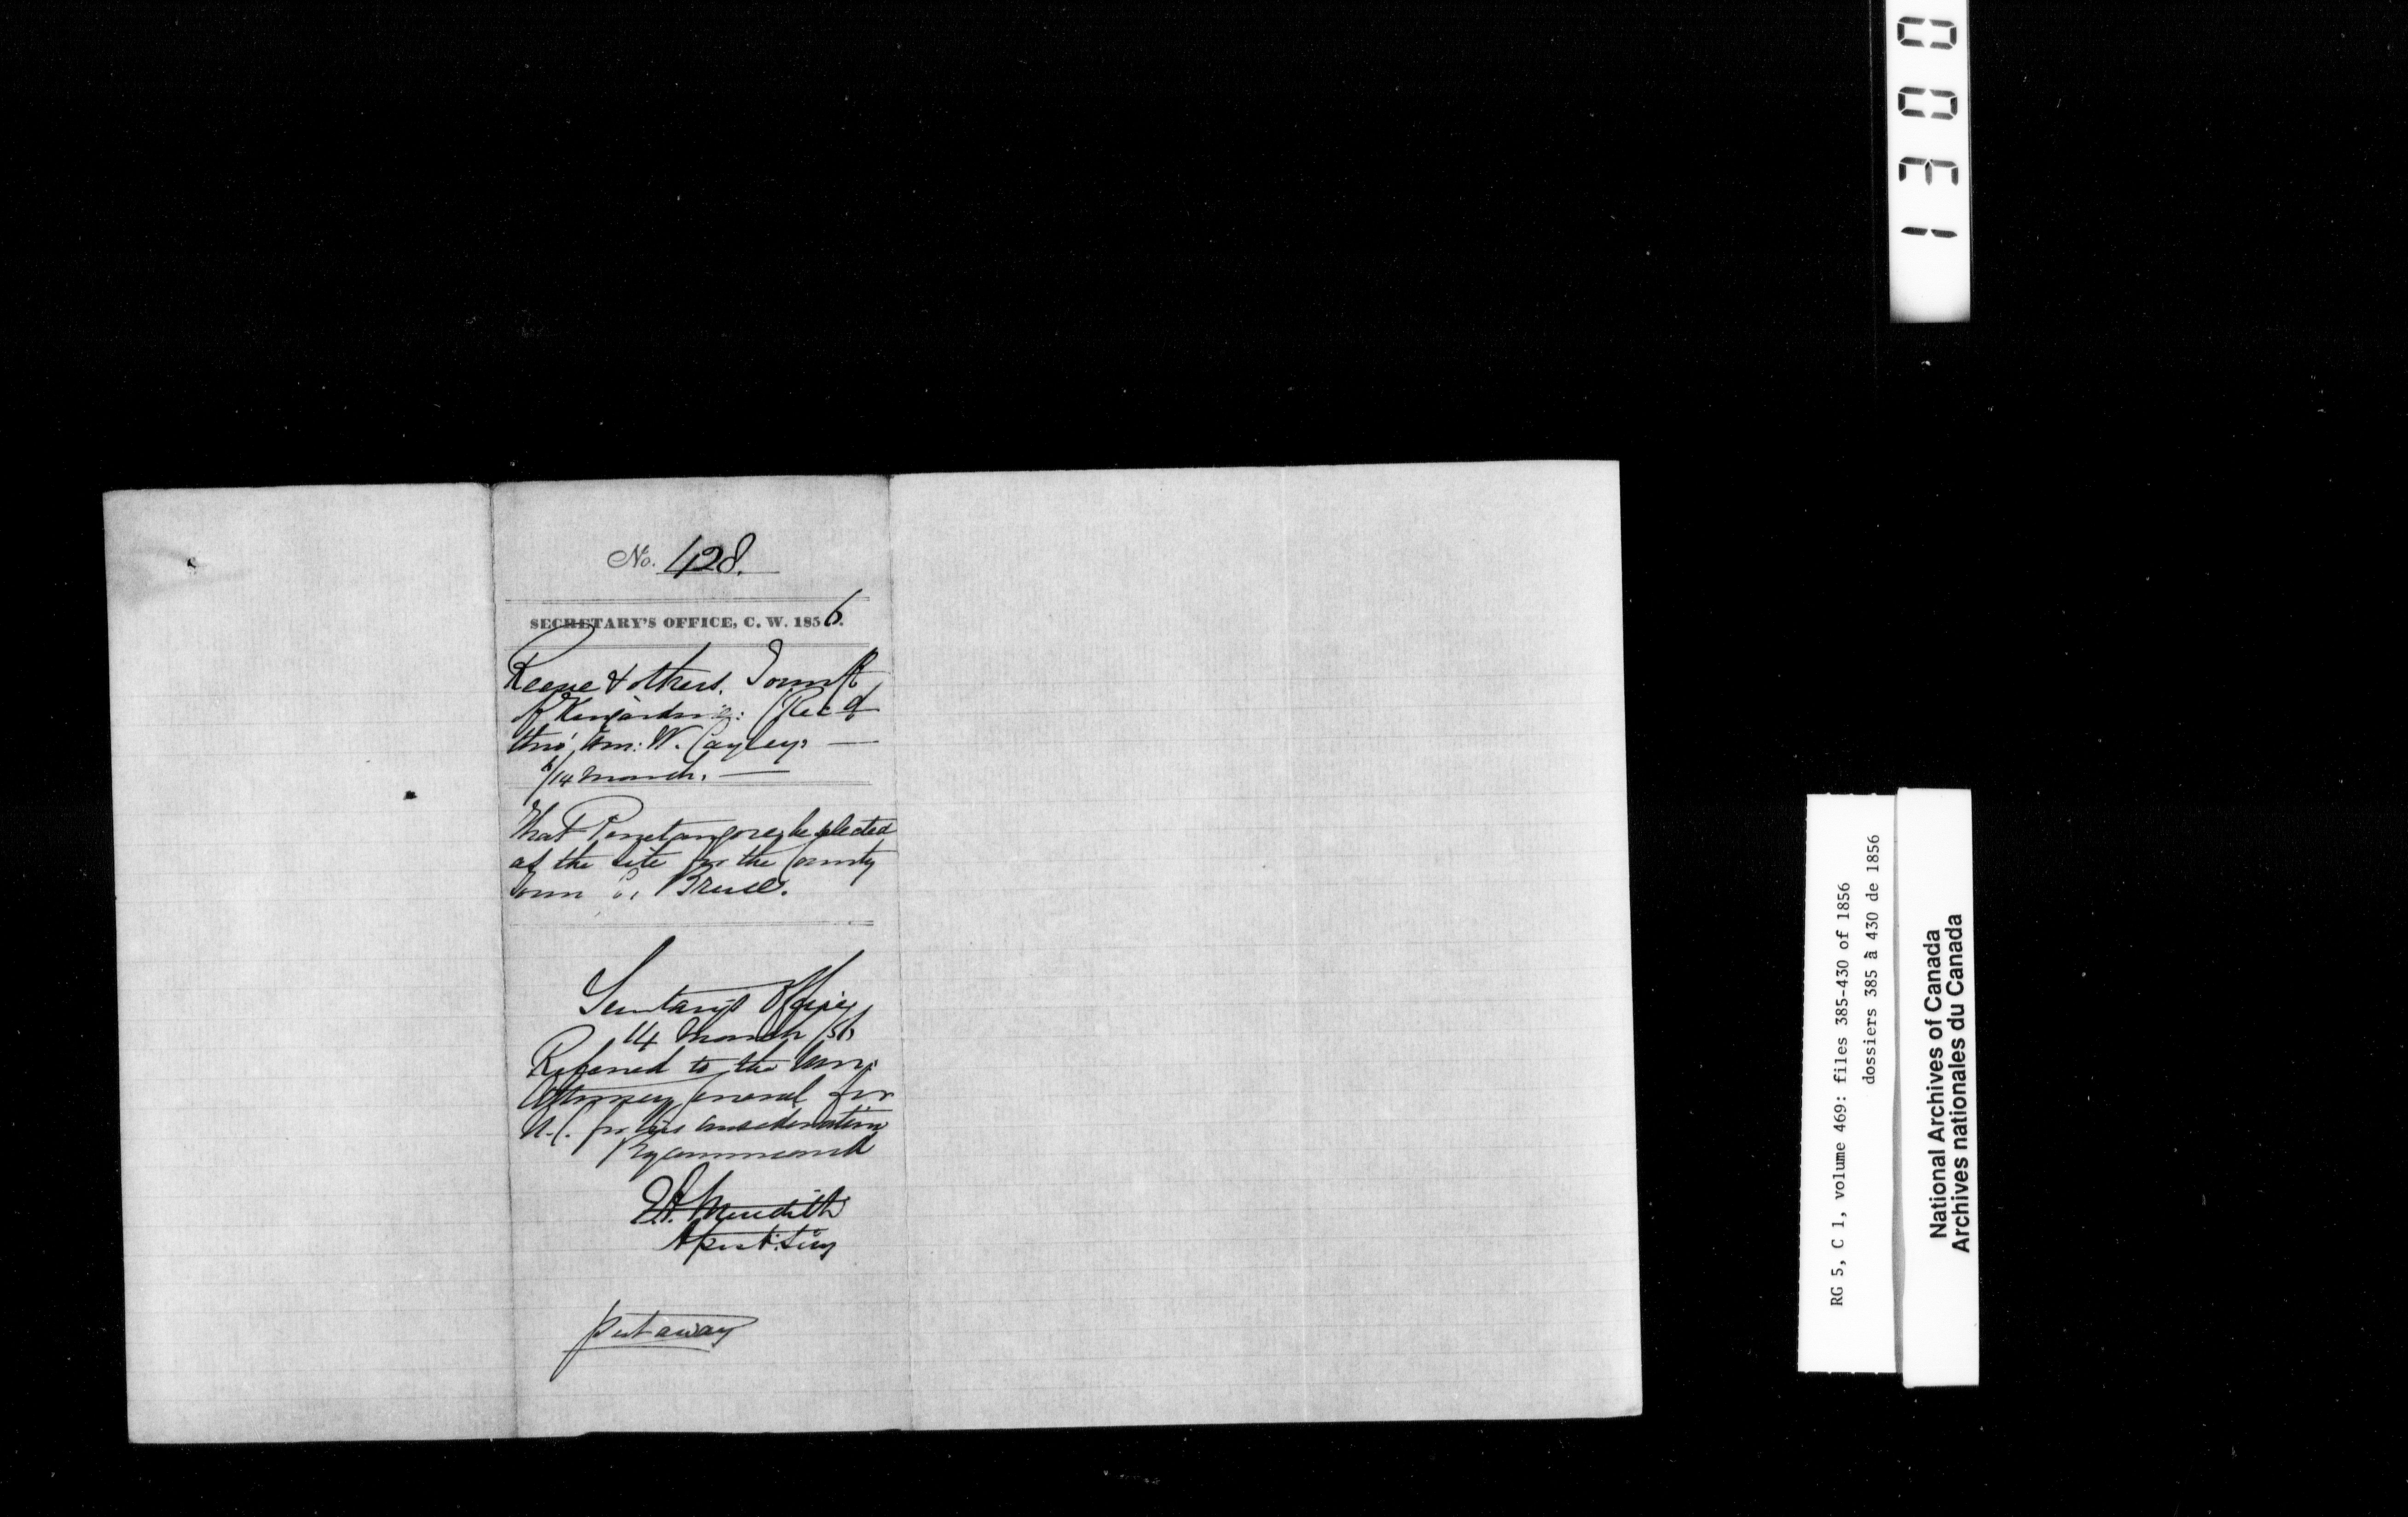 No. 428.
SECRETARY'S OFFICE, C. W. 1856.
Reeve & others. Township
of Kincardine: (Rec'd
thro' Hon: W. Cayley. —
14 March. —
That Penetangore, be selected
as the site for the County
Town of Bruce.
Secretary's Office
14 March /56
Referred to the Hon:
Attorney General for
U.C. for his consideration
By Command
E.A. Meredith
Asst. Secy
put away
1300
RG 5, C 1, volume 469: files 385-430 of 1856
dossiers 385 à 430 de 1856
National Archives of Canada
Archives nationales du Canada